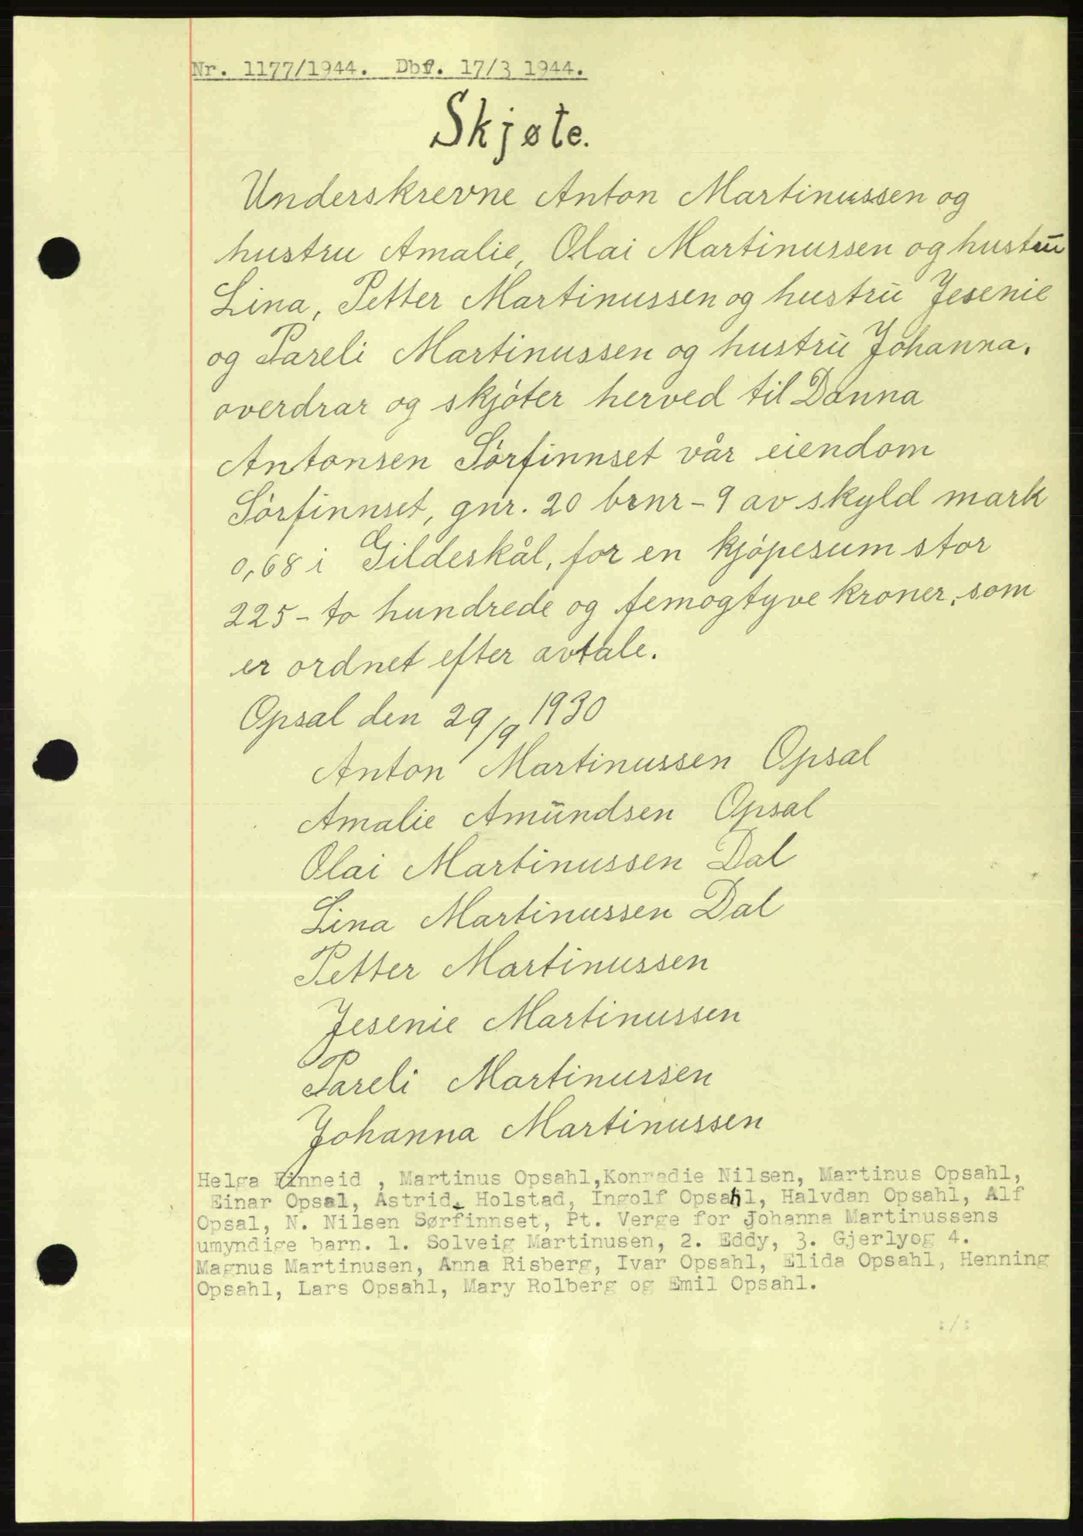 Nr. 1177/1944. Dbf. 17/3 1944.
Skjøte.
Underskrevne Anton Martinussen og
hustru Amalie, Olai Martinussen og hustrŭ
Lina, Petter Martinussen og hustrŭ Jesenie
og Pareli Martinussen og hustrŭ Johanna.
overdrar og skjóter herved til Danna
Antonsen Sórfinnset vår eiendom
Sórfinnset, gnr. 20 brnr - 9 av skyld mark
0,68 i Gildeskål, for en kjópesum stor
225 - to hundrede og femogtyve kroner, som
er ordnet efter avtale.
Opsal den 29/9 1930
Anton Martinussen Opsal
Amalie Amŭndsen Opsal
Olai Martinussen Dal
Lina Martinussen Dal
Petter Martinussen
Jesenie Martinussen
Pareli Martinussen
Johanna Martinussen
Helga Finneid , Martinus Opsahl,Konradie Nilsen, Martinus Opsahl,
Einar Opsal, Astrid Holstad, Ingolf Opsahl, Halvdan Opsahl, Alf
Opsal, N. Nilsen Sørfinnset, Pt. Verge for Johanna Martinussens
umyndige barn. 1. Solveig Martinusen, 2. Eddy, 3. Gjerlyog 4.
Magnus Martinusen, Anna Risberg, Ivar Opsahl, Elida Opsahl, Henning
Opsahl, Lars Opsahl, Mary Rolberg og Emil Opsahl.
:/: